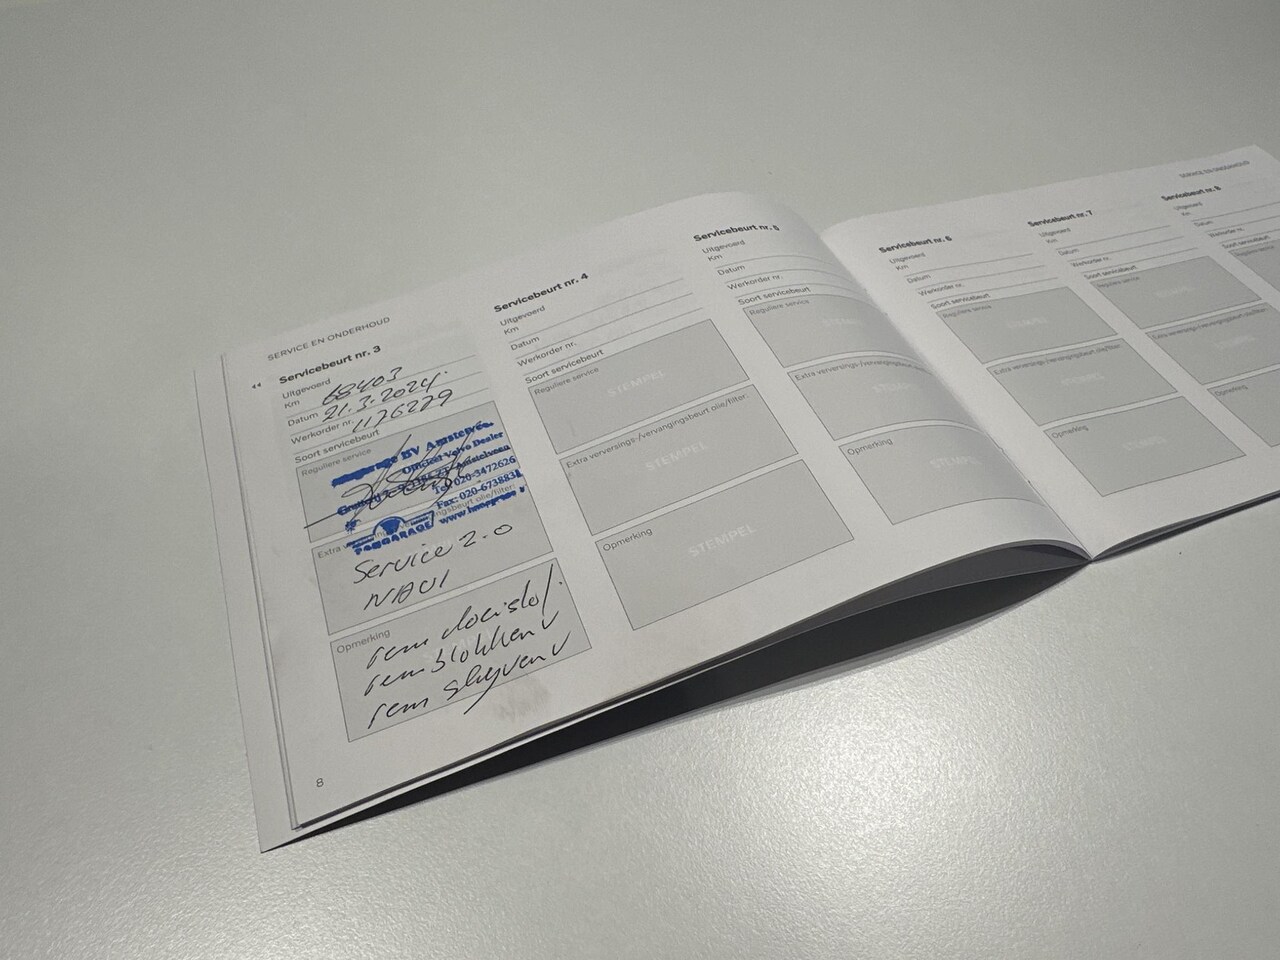 SERVICE EN ONDERHOUD
Servicebeurt nr. 3
Uitgevoerd
Km 68403
Datum 21.3.2024.
Werkorder nr. 1176279
Soort servicebeurt
Reguliere service
BV Amstelveen
Officieel Volvo Dealer
Amstelveen
Tel: 020-3472626
Fax: 020-673883
www.
TONGARAGE
Extra
olie/filter:
Service 2.0
NAVI
Opmerking
rem vloeistof.
rem blokken v
rem schyven v
8
Servicebeurt nr. 4
Uitgevoerd
Km
Datum
Werkorder nr.
Soort servicebeurt
Reguliere service
STEMPEL
Extra verversings-/vervangingsbeurt olie/filter:
STEMPEL
Opmerking
STEMPEL
Servicebeurt nr. 5
Uitgevoerd
Km
Datum
Werkorder nr.
Soort servicebeurt
Reguliere service
STEMPEL
Extra verversings-/vervangingsbeurt olie/filter:
Opmerking
SERVICE EN ONDERHOUD
Servicebeurt nr. 6
Uitgevoerd
Km
Datum
Werkorder nr.
Soort servicebeurt
Reguliere service
STEMPEL
Extra verversings-/vervangingsbeurt olie/filter:
STEMPEL
Opmerking
STEMPEL
Servicebeurt nr. 7
Uitgevoerd
Km
Datum
Werkorder nr.
Soort servicebeurt
Reguliere service
Extra verversings-/vervangingsbeurt olie/filter:
Opmerking
Servicebeurt nr. 8
Uitgevoerd
Km
Datum
Werkorder nr.
Soort servicebeurt
Reguliere service
Opmerking